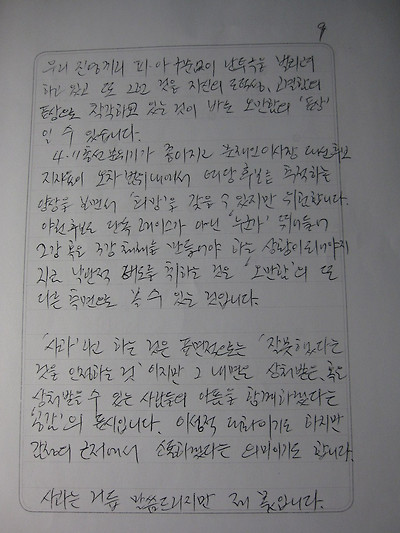 9
우리 진영끼리 피·아 구분없이 난투극을 벌이려
하고 있고 또 그런 것을 자신의 도덕성, 고결함의
표상으로 착각하고 있는 것이 바로 오만함의 '표상'
일 수 있습니다.
4.11 총선 분위기가 좋아지고 문재인 이사장 대선후보
지지율이 오차 범위내에서 여당 후보를 추격하는
양상을 보면서 '희망'을 갖을 수 있지만 위험합니다.
야권후보도 단독 레이스가 아닌 '누군가' 뛰어들어
2강 혹은 3강 체제를 만들어야 하는 상황이 되어야지
지금 낙관적 태도를 취하는 것은 '오만함'의 또
다른 측면으로 볼 수 있는 것입니다.
'사과'라고 하는 것은 표면적으로는 '잘못했다는
것을 인정하는 것'이지만 그 내면은 상처받은, 혹은
상처받을 수 있는 사람들의 아픔을 함께하겠다는
'공감'의 표시입니다. 이성적 대화이기도 하지만
감성의 근저에서 소통하겠다는 의미이기도 합니다.
사과는 거듭 말씀드리지만 제 몫입니다.